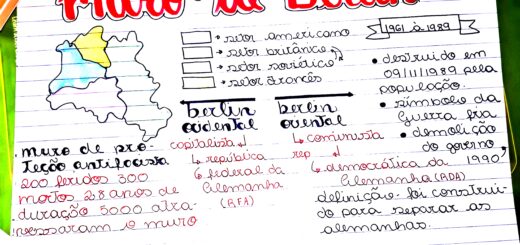 Muro de Berlim
setor americano
setor britânico
setor soviético
setor francês
1961 à 1989
• destruido em
09/11/1989 pela
população.
• simbolo da
Guerra fria
• demolição
do governo,
1990
berlin
ocidental
berlin
oriental
capitalista
↳ república
↳ federal da
Alemanha
(RFA)
↳ comunista
rep ↳ democrática da
Alemanha (RDA)
• muro de pro-
teção antifacista
200 feridos 300
mortos 28 anos de
duração 5000 atra-
vessaram o muro
definição. foi construi-
do para separar as
alemanhas.